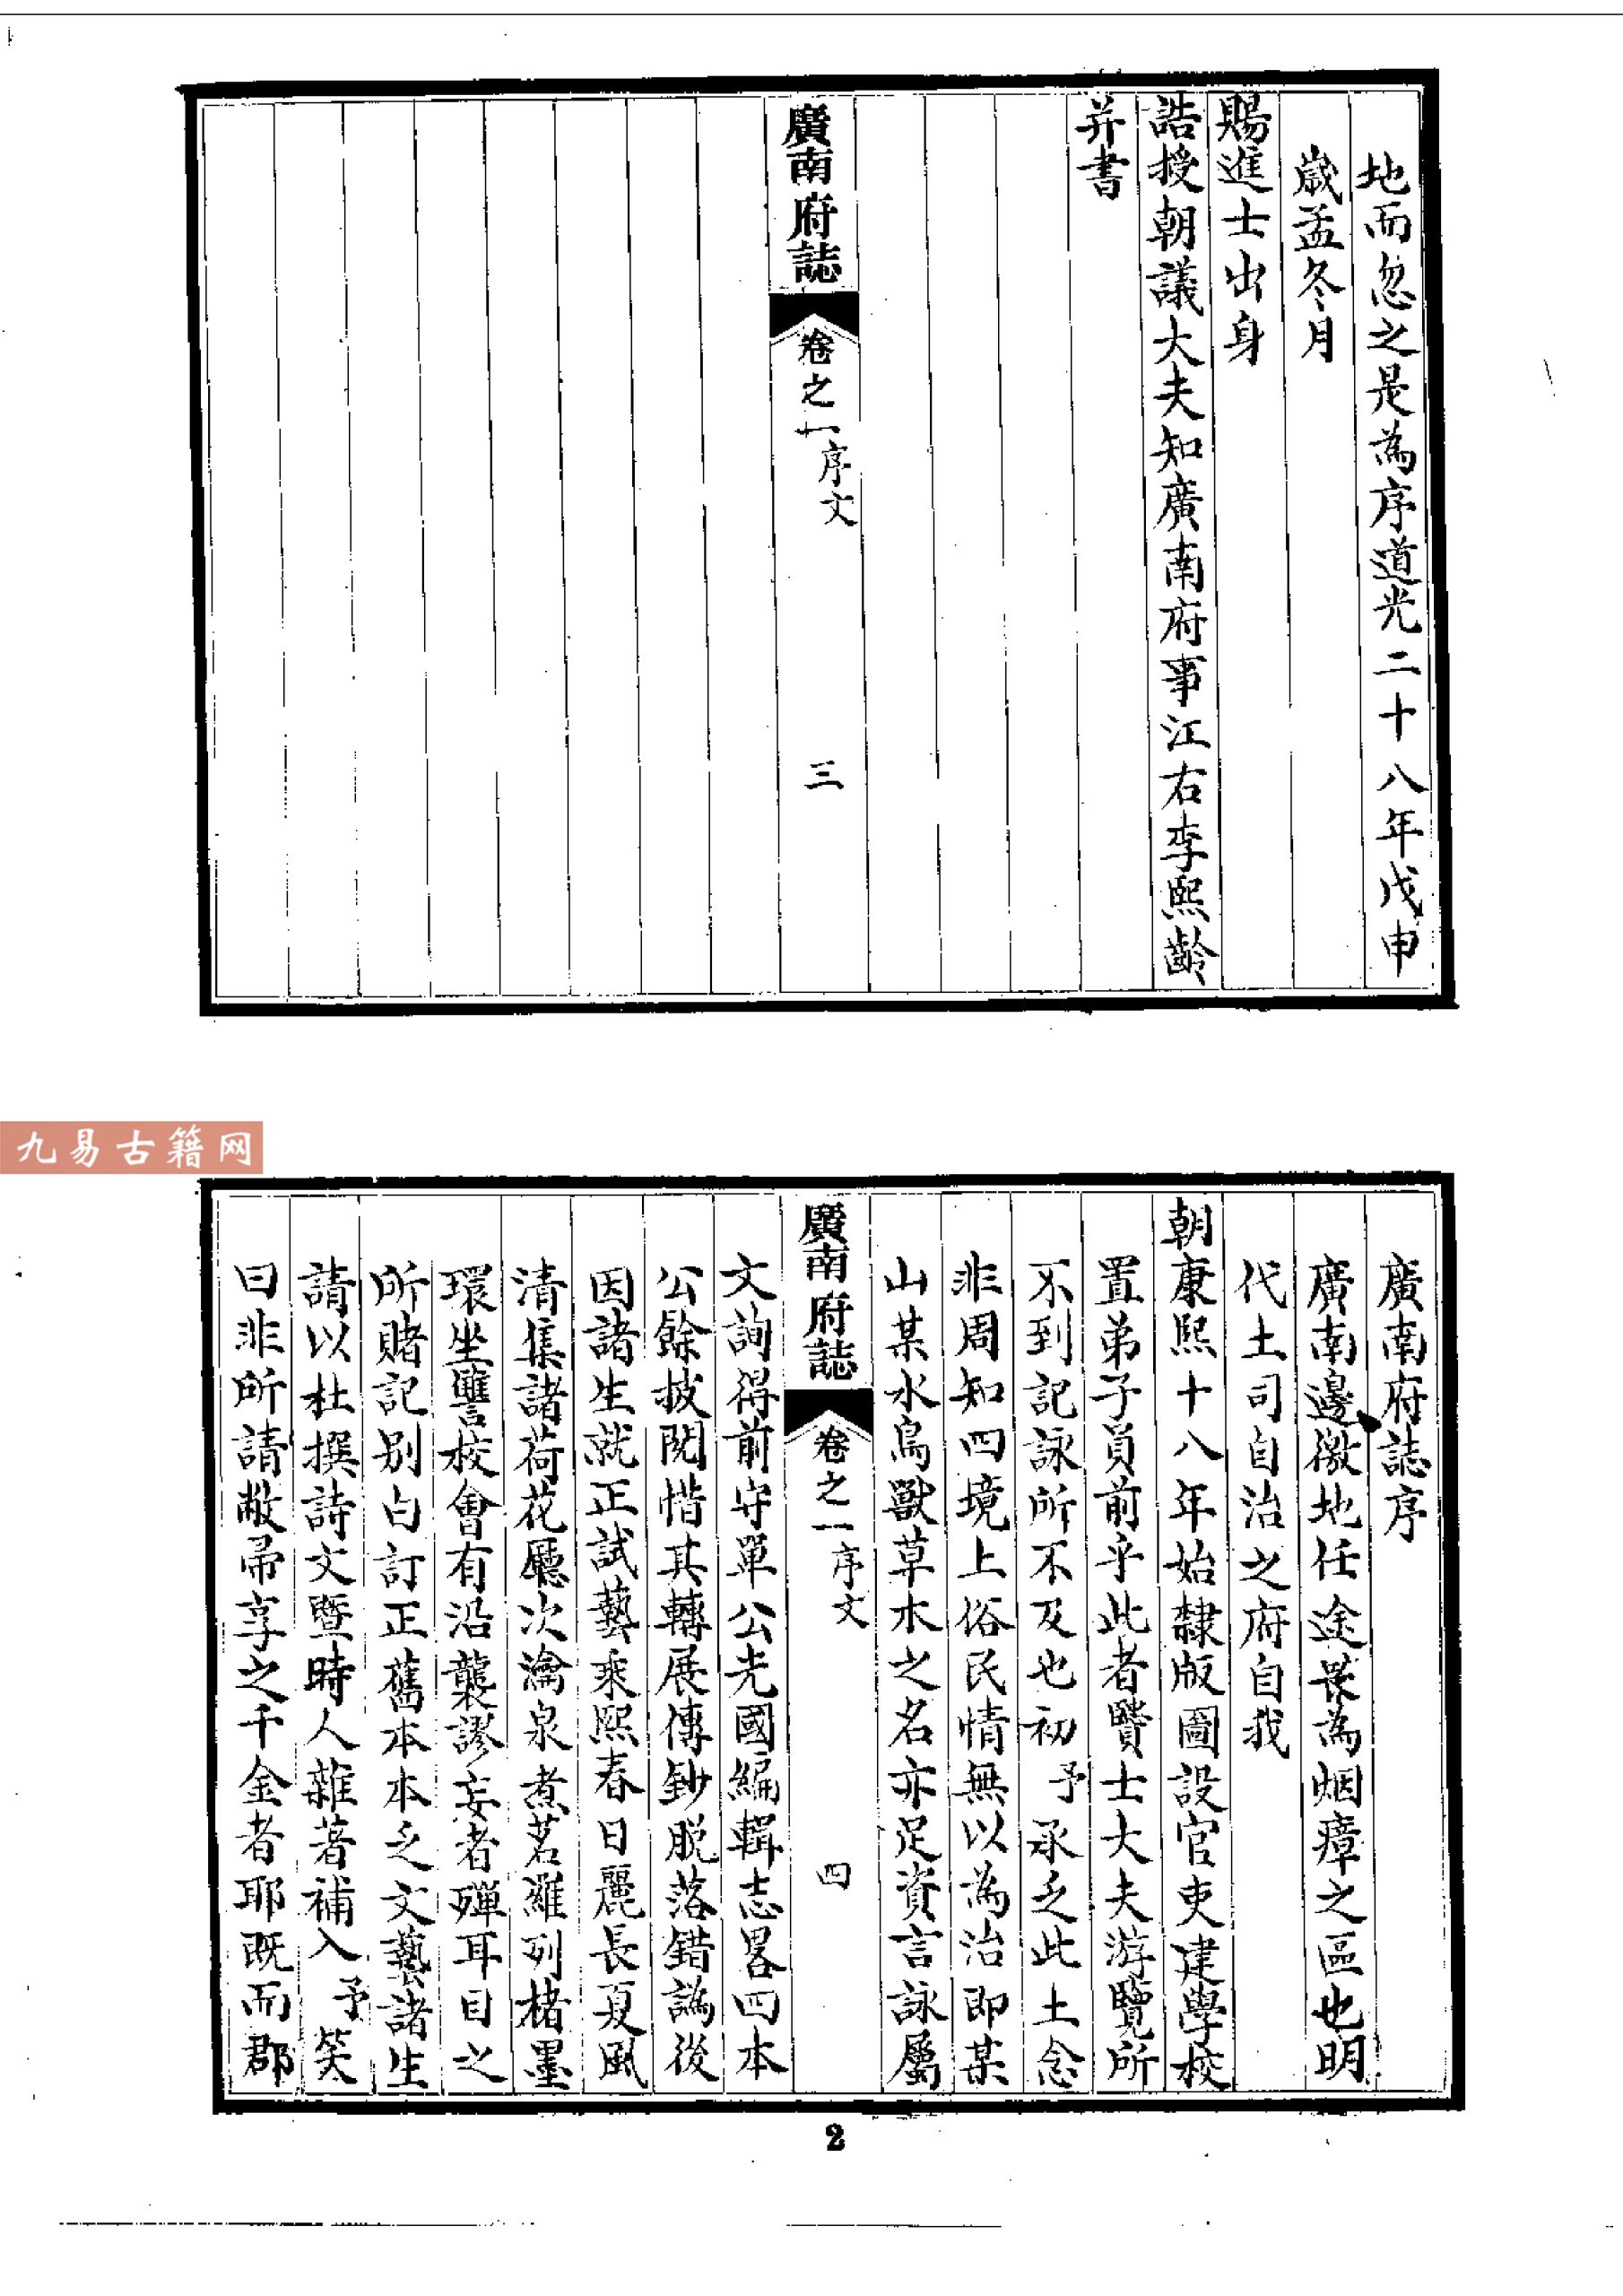 地而忽之是為序道光二十八年戊申
歲孟冬月
賜進士出身
誥授朝議大夫知廣南府事江右李熙齡
并書
廣南府誌 卷之一 序文 三
九易古籍网
廣南府誌序
廣南邊徼地任途畏為烟瘴之區也明
代土司自治之府自我
朝康熙十八年始隸版圖設官吏建學校
置弟子員前乎此者賢士大夫游覽所
不到記詠所不及也初予承乏此土念
非周知四境上俗民情無以為治即某
山某水鳥獸草木之名亦足資言詠屬
廣南府誌 卷之一 序文 四
文詢得前守單公光國編輯志畧四本
公餘披閱惜其轉展傳鈔脱落錯譌後
因諸生就正試藝乘熙春日麗長夏風
清集諸荷花廳次瀹泉煮茗羅列楮墨
環坐讐校會有沿襲謬妄者殫耳目之
所賭記别白訂正舊本本乏文藝諸生
請以杜撰詩文暨時人雜著補入予笑
曰非所請敝帚享之千金者耶既而郡
2